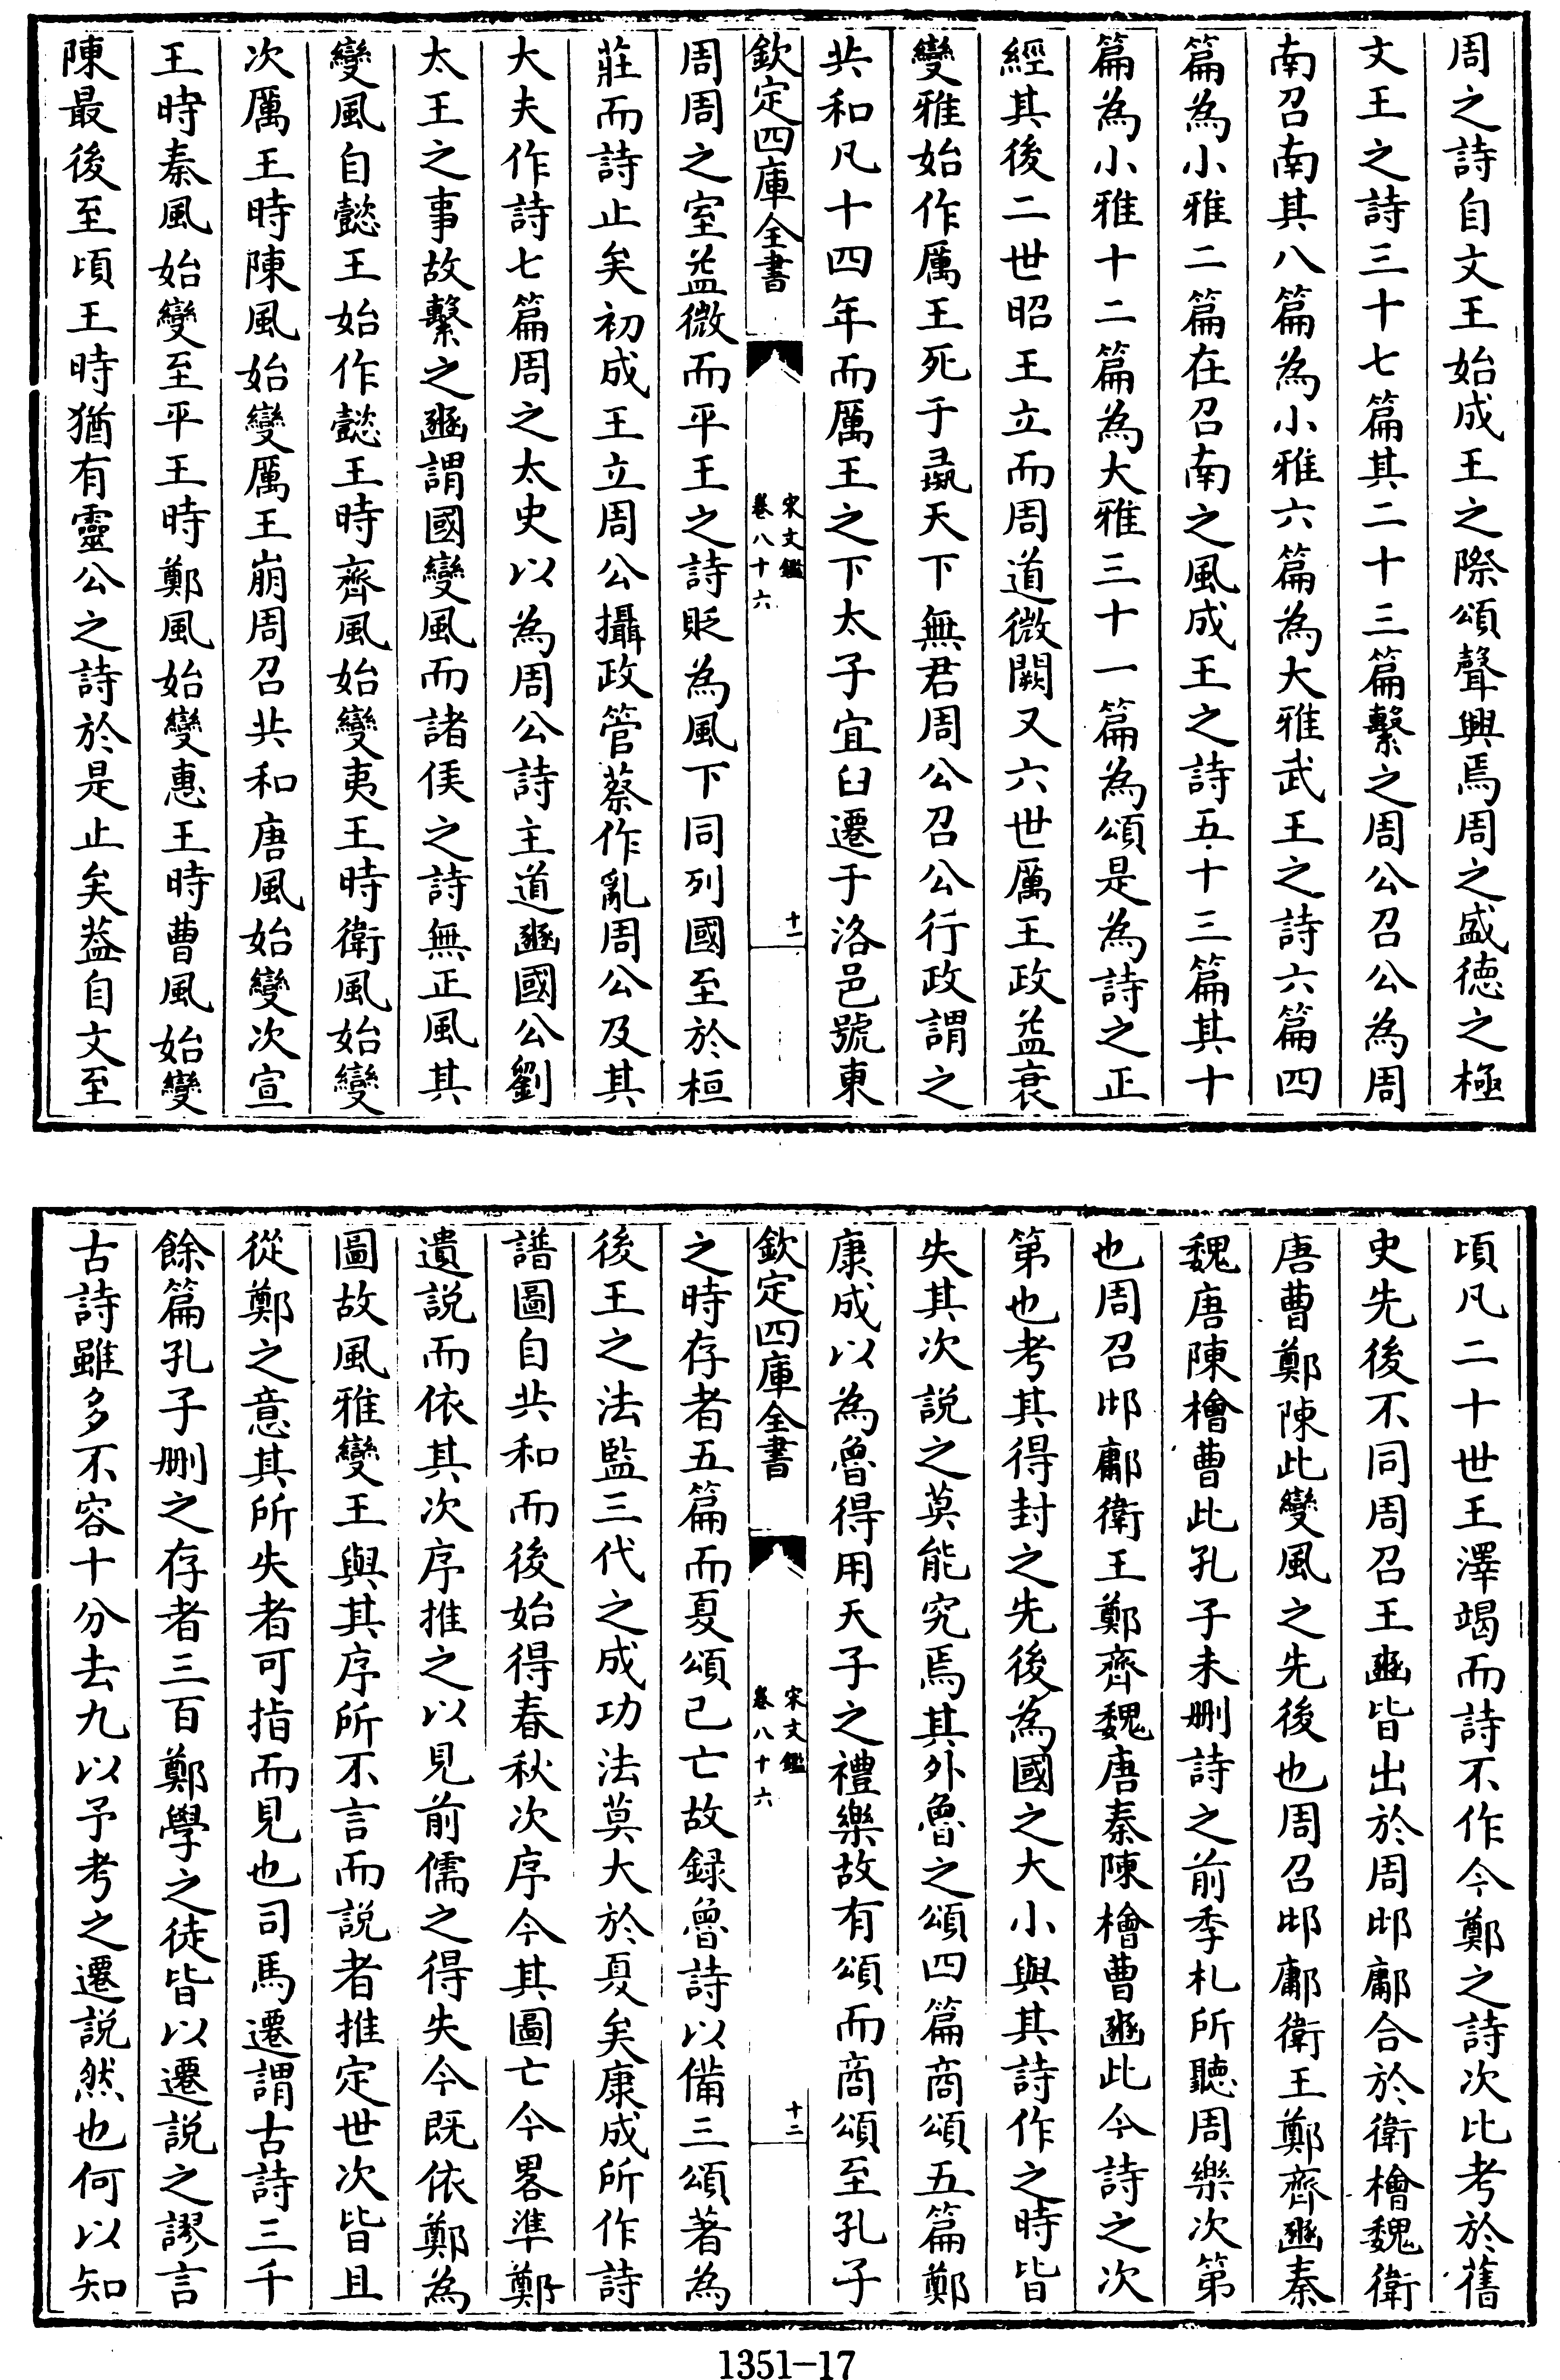 周之詩自文王始成王之際頌聲興焉周之盛徳之極
文王之詩三十七篇其二十三篇繫之周公召公為周
南召南其八篇為小雅六篇為大雅武王之詩六篇四
篇為小雅二篇在召南之風成王之詩五十三篇其十
篇為小雅十二篇為大雅三十一篇為頌是為詩之正
經其後二世昭王立而周道微闕又六世厲王政益衰
變雅始作厲王死于彘天下無君周公召公行政謂之
共和凡十四年而厲王之下太子宜臼遷于洛邑號東
欽定四庫全書
宋文鑑
卷八十六
十一
周周之室益微而平王之詩貶為風下同列國至於桓
莊而詩止矣初成王立周公攝政管蔡作亂周公及其
大夫作詩七篇周之太史以為周公詩主道豳國公劉
太王之事故繫之豳謂國變風而諸侯之詩無正風其
變風自懿王始作懿王時齊風始變夷王時衛風始變
次厲王時陳風始變厲王崩周召共和唐風始變次宣
王時秦風始變至平王時鄭風始變惠王時曹風始變
陳最後至頃王時猶有靈公之詩於是止矣葢自文至
頃凡二十世王澤竭而詩不作今鄭之詩次比考於舊
史先後不同周召王豳皆出於周邶鄘合於衛檜魏衛
唐曹鄭陳此變風之先後也周召邶鄘衛王鄭齊豳秦
魏唐陳檜曹此孔子未刪詩之前季札所聽周樂次第
也周召邶鄘衛王鄭齊魏唐秦陳檜曹豳此今詩之次
第也考其得封之先後為國之大小與其詩作之時皆
失其次說之莫能究焉其外魯之頌四篇商頌五篇鄭
康成以為魯得用天子之禮樂故有頌而商頌至孔子
欽定四庫全書
宋文鑑
卷八十六
十二
之時存者五篇而夏頌已亡故録魯詩以備三頌著為
後王之法監三代之成功法莫大於夏矣康成所作詩
譜圖自共和而後始得春秋次序今其圖亡今畧準鄭
遺說而依其次序推之以見前儒之得失今既依鄭為
圖故風雅變王與其序所不言而說者推定世次皆且
從鄭之意其所失者可指而見也司馬遷謂古詩三千
餘篇孔子刪之存者三百鄭學之徒皆以遷說之謬言
古詩雖多不容十分去九以予考之遷說然也何以知
1351-17